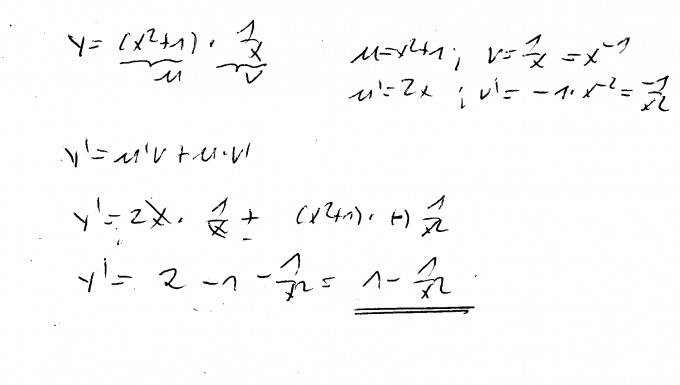 y = (x²+1) · 1/x
u v
u = x²+1 ; v = 1/x = x⁻¹
u' = 2x ; v' = -1 · x⁻² = -1/x²
y' = u'v + u·v'
y' = 2x · 1/x + (x²+1) · (-) 1/x²
y' = 2 - 1 - 1/x² = 1 - 1/x²